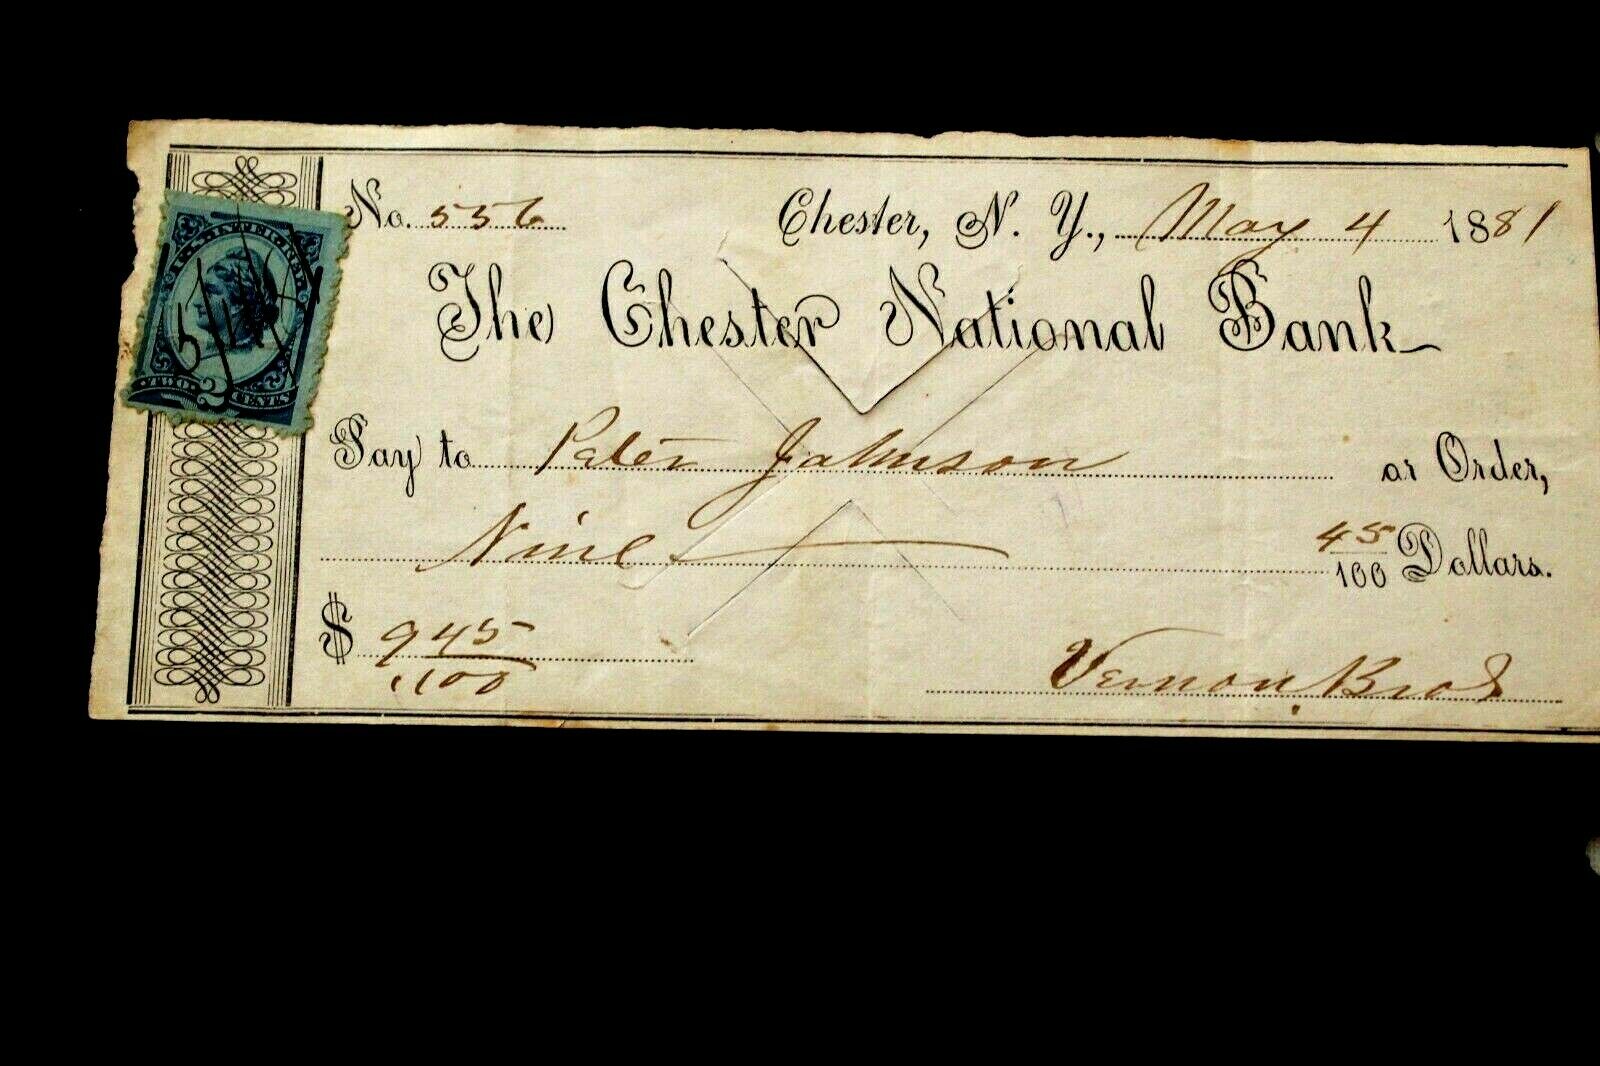 No. 556 Chester, N. Y., May 4 1881
The Chester National Bank
U.S. INTER. REV.
TWO 2 CENTS
Pay to Peter Johnson or Order,
Nine 45/100 Dollars.
$ 9 45/100
Vernon Bros